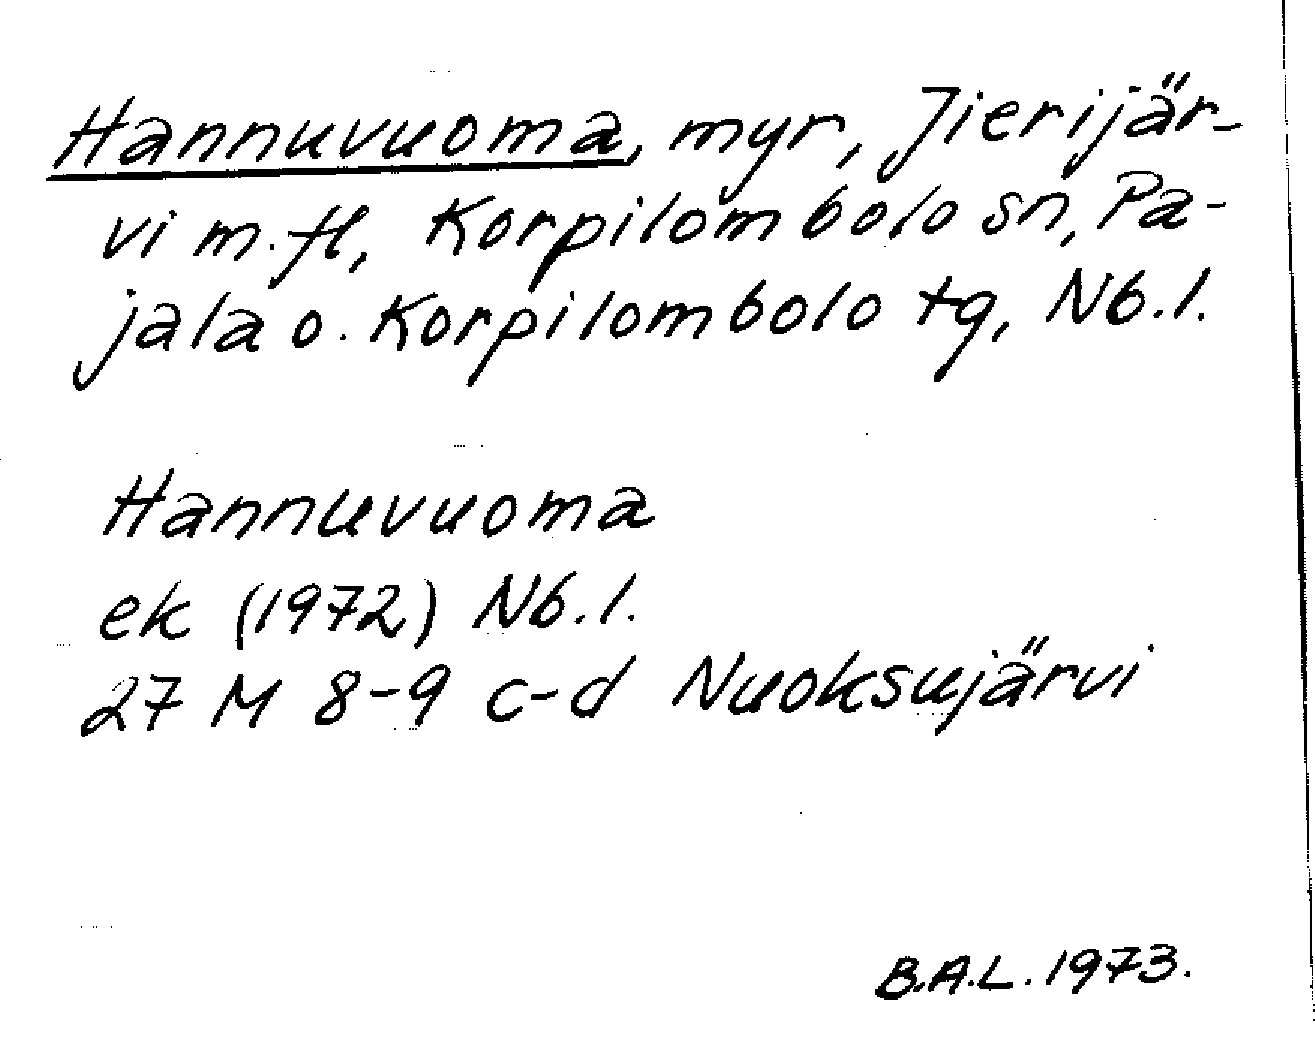 Hannuvuoma, myr, Jierijär-
vi m.fl, Korpilombolo sn, Pa-
jala o. Korpilombolo tg, Nb.l.
Hannuvuoma
ek (1972) Nb.l.
27 M 8-9 c-d Nuoksujärvi
B.A.L. 1973.